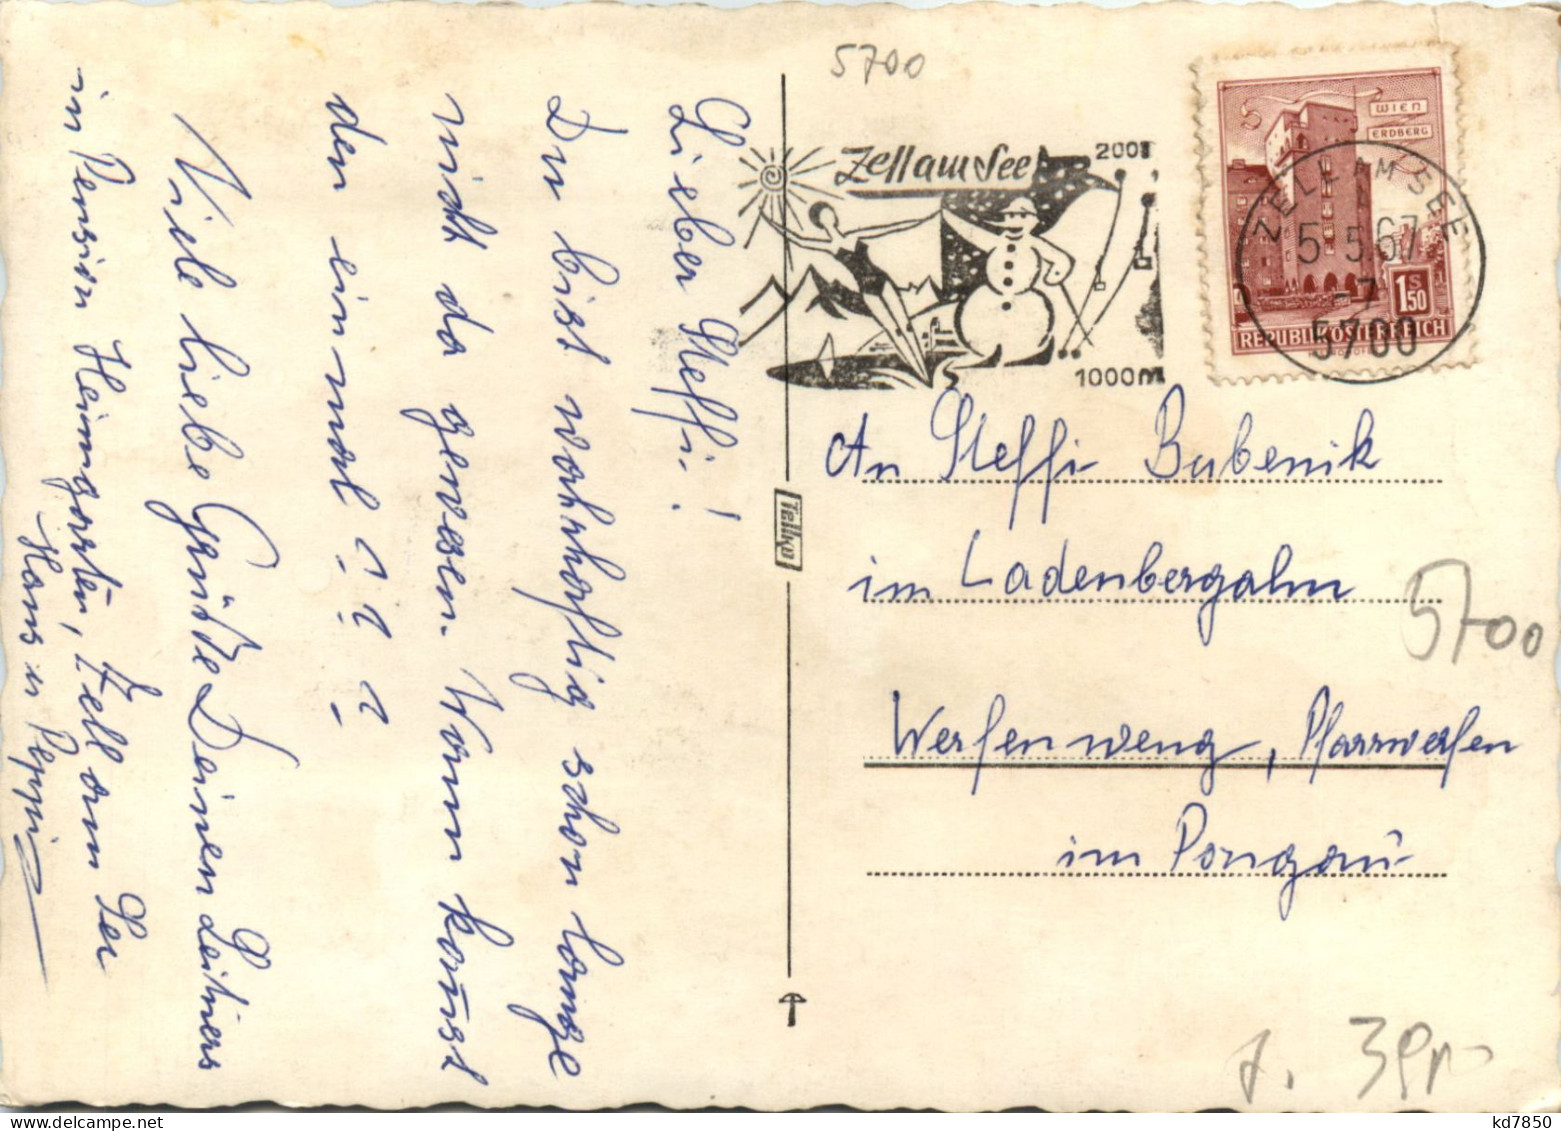 Lieber Steffi!
Du bist wahrhaftig schon lange
nicht da gewesen. Wann kommst
den einmal ? ? ?
Viele liebe Grüße Deinen Leitners
in Pension Heimgarten, Zell am See
Hans u Peppi
5700
Zell am See
200
1000m
WIEN
ERDBERG
1 S 50
REPUBLIK ÖSTERREICH
ZELL AM SEE
5.5.67-7
5700
Telko
An Steffi Bubenik
im Ladenbergalm
5700
Werfenweng, Pfarrwerfen
im Pongau
kd7850